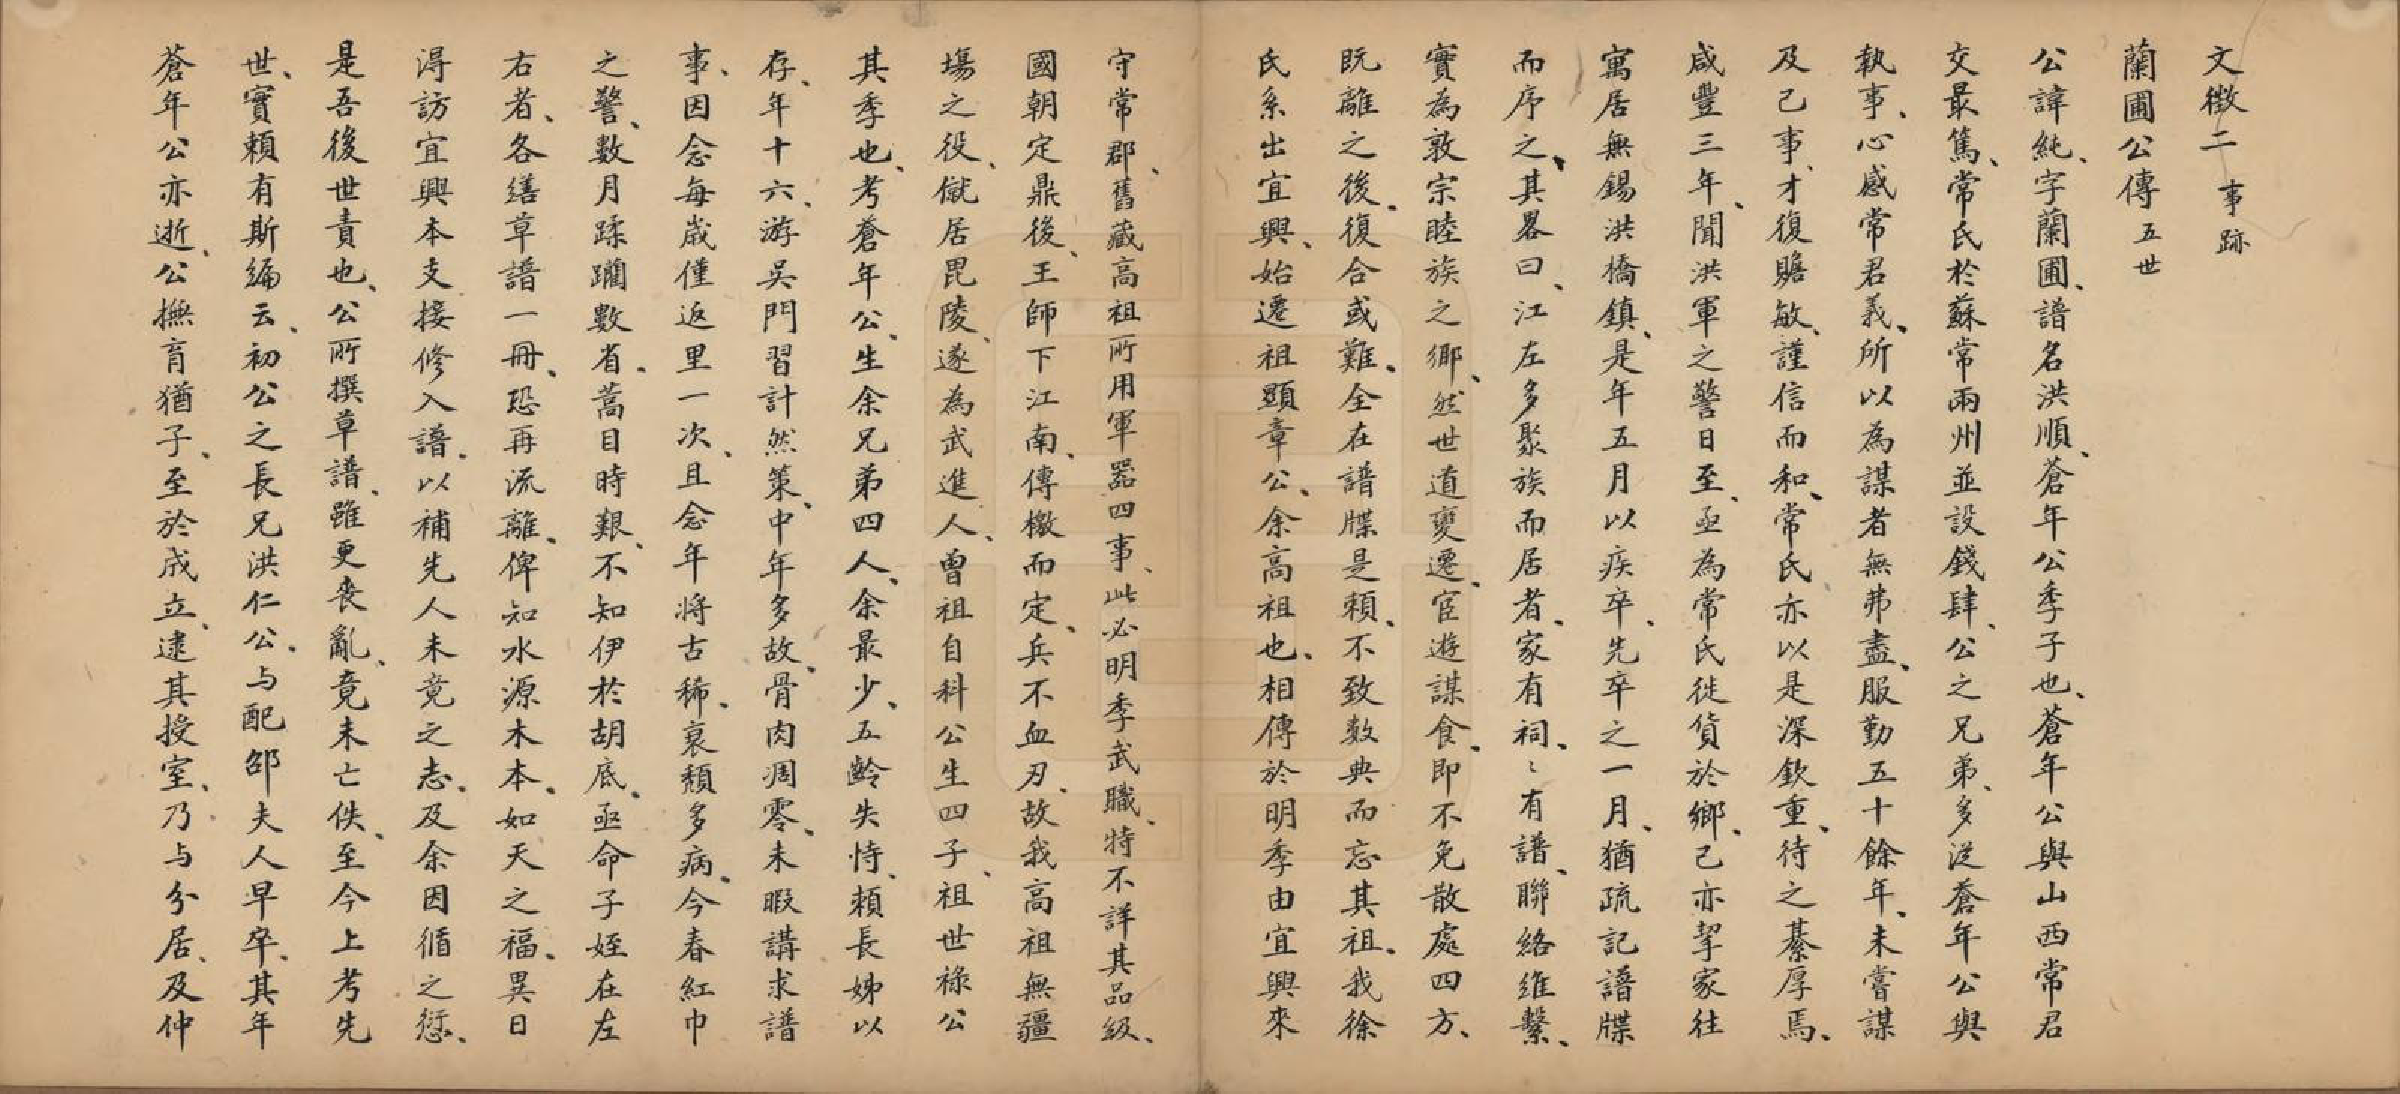 文徵二 事跡
蘭圃公傳 五世
公諱純、字蘭圃、譜名洪順、蒼年公季子也、蒼年公與山西常君
交最篤、常氏於蘇常兩州並設錢肆、公之兄弟、多從蒼年公與
執事、心感常君義、所以為謀者無弗盡、服勤五十餘年、未嘗謀
及己事、才復贍敏、謹信而和、常氏亦以是深欽重、待之綦厚焉、
咸豐三年、聞洪軍之警日至、亟為常氏徙貨於鄉、己亦挈家往
寓居無錫洪橋鎮、是年五月以疾卒、先卒之一月、猶疏記譜牒
而序之、其畧曰、江左多聚族而居者、家有祠、〻有譜、聯絡維繫、
實為敦宗睦族之鄉、然世道變遷、宦遊謀食、即不免散處四方、
既離之後、復合或難、全在譜牒是賴、不致數典而忘其祖、我徐
氏系出宜興、始遷祖顯章公、余高祖也、相傳於明季由宜興來
守常郡、舊藏高祖所用軍器四事、此必明季武職、特不詳其品級、
國朝定鼎後、王師下江南、傳檄而定、兵不血刃、故我高祖無疆
場之役、僦居毘陵、遂為武進人、曾祖自科公生四子、祖世祿公
其季也、考蒼年公、生余兄弟四人、余最少、五齡失恃、賴長姊以
存、年十六、游吳門習計然策、中年多故、骨肉凋零、未暇講求譜
事、因念每歲僅返里一次、且念年將古稀、衰頹多病、今春紅巾
之警、數月蹂躪數省、蒿目時艱、不知伊於胡底、亟命子姪在左
右者、各繕草譜一冊、恐再流離、俾知水源木本、如天之福、異日
得訪宜興本支接修入譜、以補先人未竟之志、及余因循之愆、
是吾後世責也、公所撰草譜、雖更喪亂、竟未亡佚、至今上考先
世、實賴有斯編云、初公之長兄洪仁公、与配邵夫人早卒、其年
蒼年公亦逝、公撫育猶子、至於成立、逮其授室、乃与分居、及仲